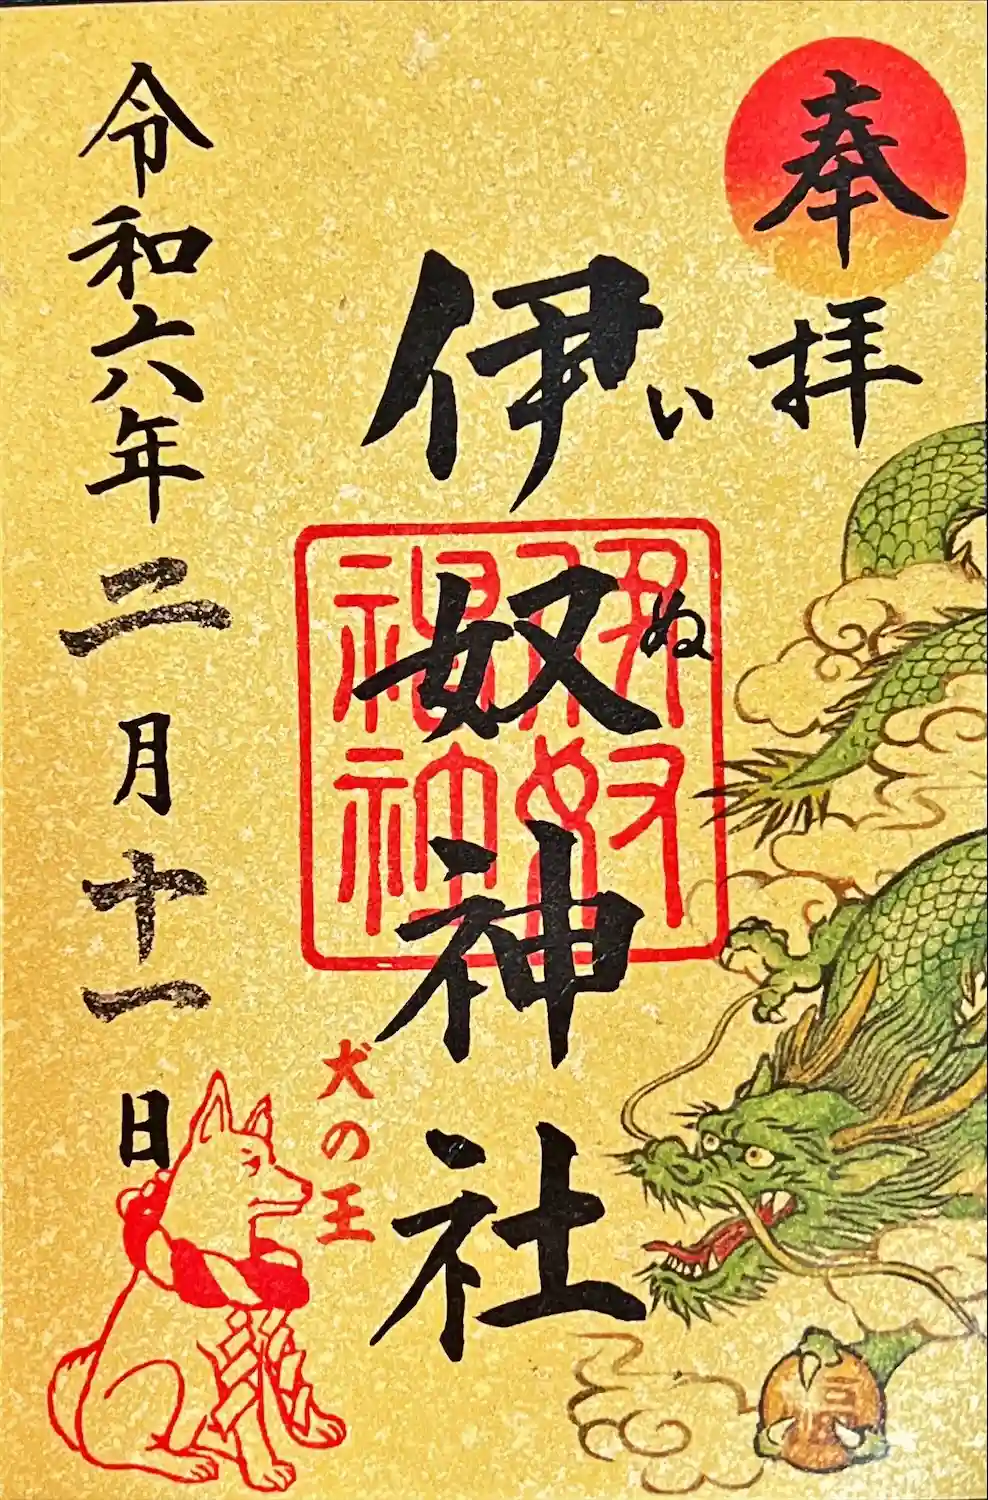 奉拝
伊奴神社
いぬ
犬の王
令和六年二月十一日